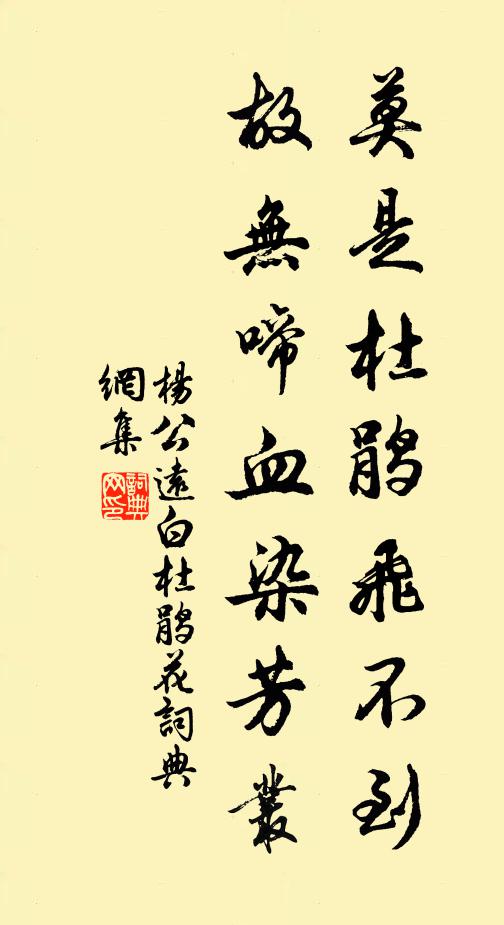 莫是杜鹃飛不到
故無啼血染芳叢
楊公遠白杜鹃花詞典
網集
詞典
网印